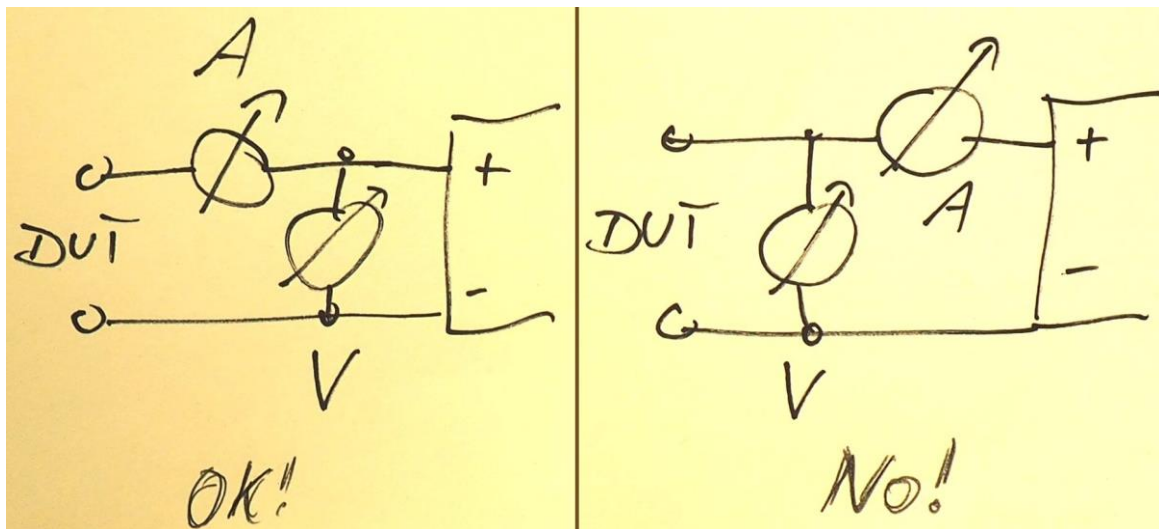 A
+
DUT
-
V
OK!
+
A
DUT
-
V
No!